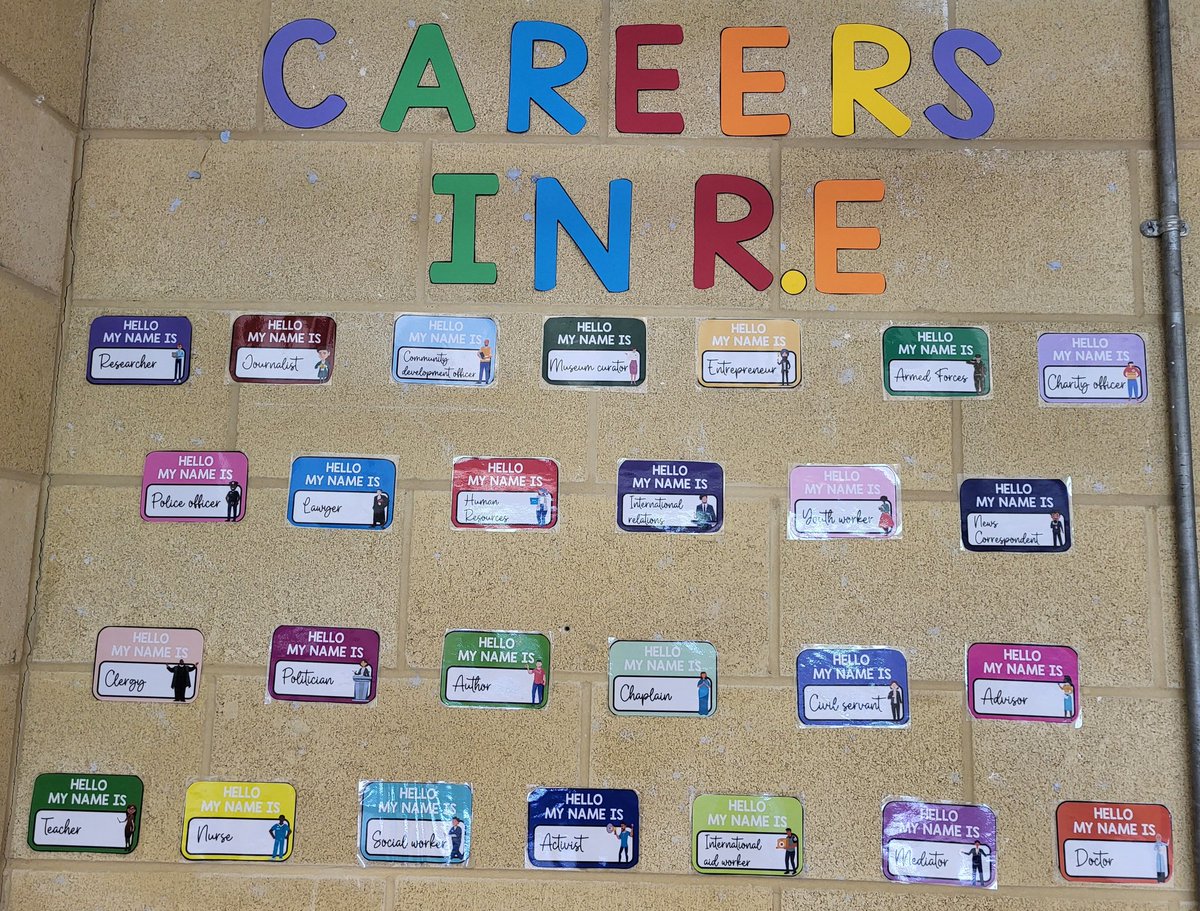 CAREERS
IN R.E
HELLO
MY NAME IS
Researcher
HELLO
MY NAME IS
Journalist
HELLO
MY NAME IS
Community
development officer
HELLO
MY NAME IS
Museum curator
HELLO
MY NAME IS
Entrepreneur
HELLO
MY NAME IS
Armed Forces
HELLO
MY NAME IS
Charity officer
HELLO
MY NAME IS
Police officer
HELLO
MY NAME IS
Lawyer
HELLO
MY NAME IS
Human
Resources
HELLO
MY NAME IS
International
relations
HELLO
MY NAME IS
Youth worker
HELLO
MY NAME IS
News
Correspondent
HELLO
MY NAME IS
Clergy
HELLO
MY NAME IS
Politician
HELLO
MY NAME IS
Author
HELLO
MY NAME IS
Chaplain
HELLO
MY NAME IS
Civil servant
HELLO
MY NAME IS
Advisor
HELLO
MY NAME IS
Teacher
HELLO
MY NAME IS
Nurse
HELLO
MY NAME IS
Social worker
HELLO
MY NAME IS
Activist
HELLO
MY NAME IS
International
aid worker
HELLO
MY NAME IS
Mediator
HELLO
MY NAME IS
Doctor